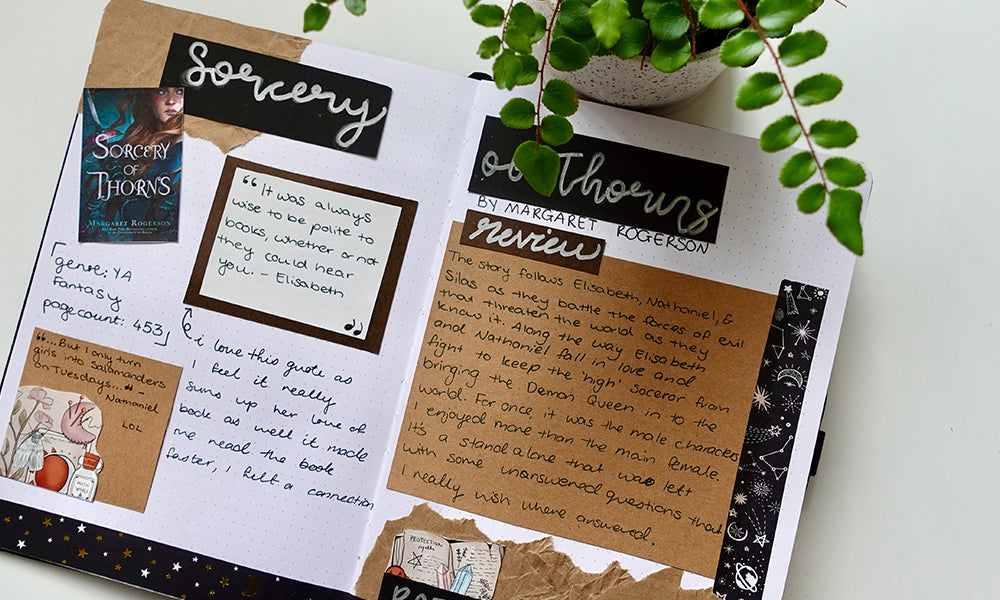 Sorcery
SORCERY
OF
THORNS
MARGARET ROGERSON
genre: YA
Fantasy
pagecount: 453
"It was always
wise to be polite to
books, whether or not
they could hear
you. - Elisabeth
i love this quote as
I feel it really
sums up her love of
book as well it made
me read the book
faster, I felt a connection
"...But I only turn
girls into Salamanders
on Tuesdays..." -
Nathaniel
LOL
of Thorns
BY MARGARET ROGERSON
review
The story follows Elisabeth, Nathaniel, &
Silas as they battle the forces of evil
that threaten the world as they
know it. Along the way Elisabeth
and Nathaniel fall in love and
fight to keep the 'high' Sorceror from
bringing the Demon Queen in to the
world. For once it was the male characters
I enjoyed more than the main female.
It's a stand alone that was left
with some unanswered questions that
I really wish where answered.
PROTECTION
spells